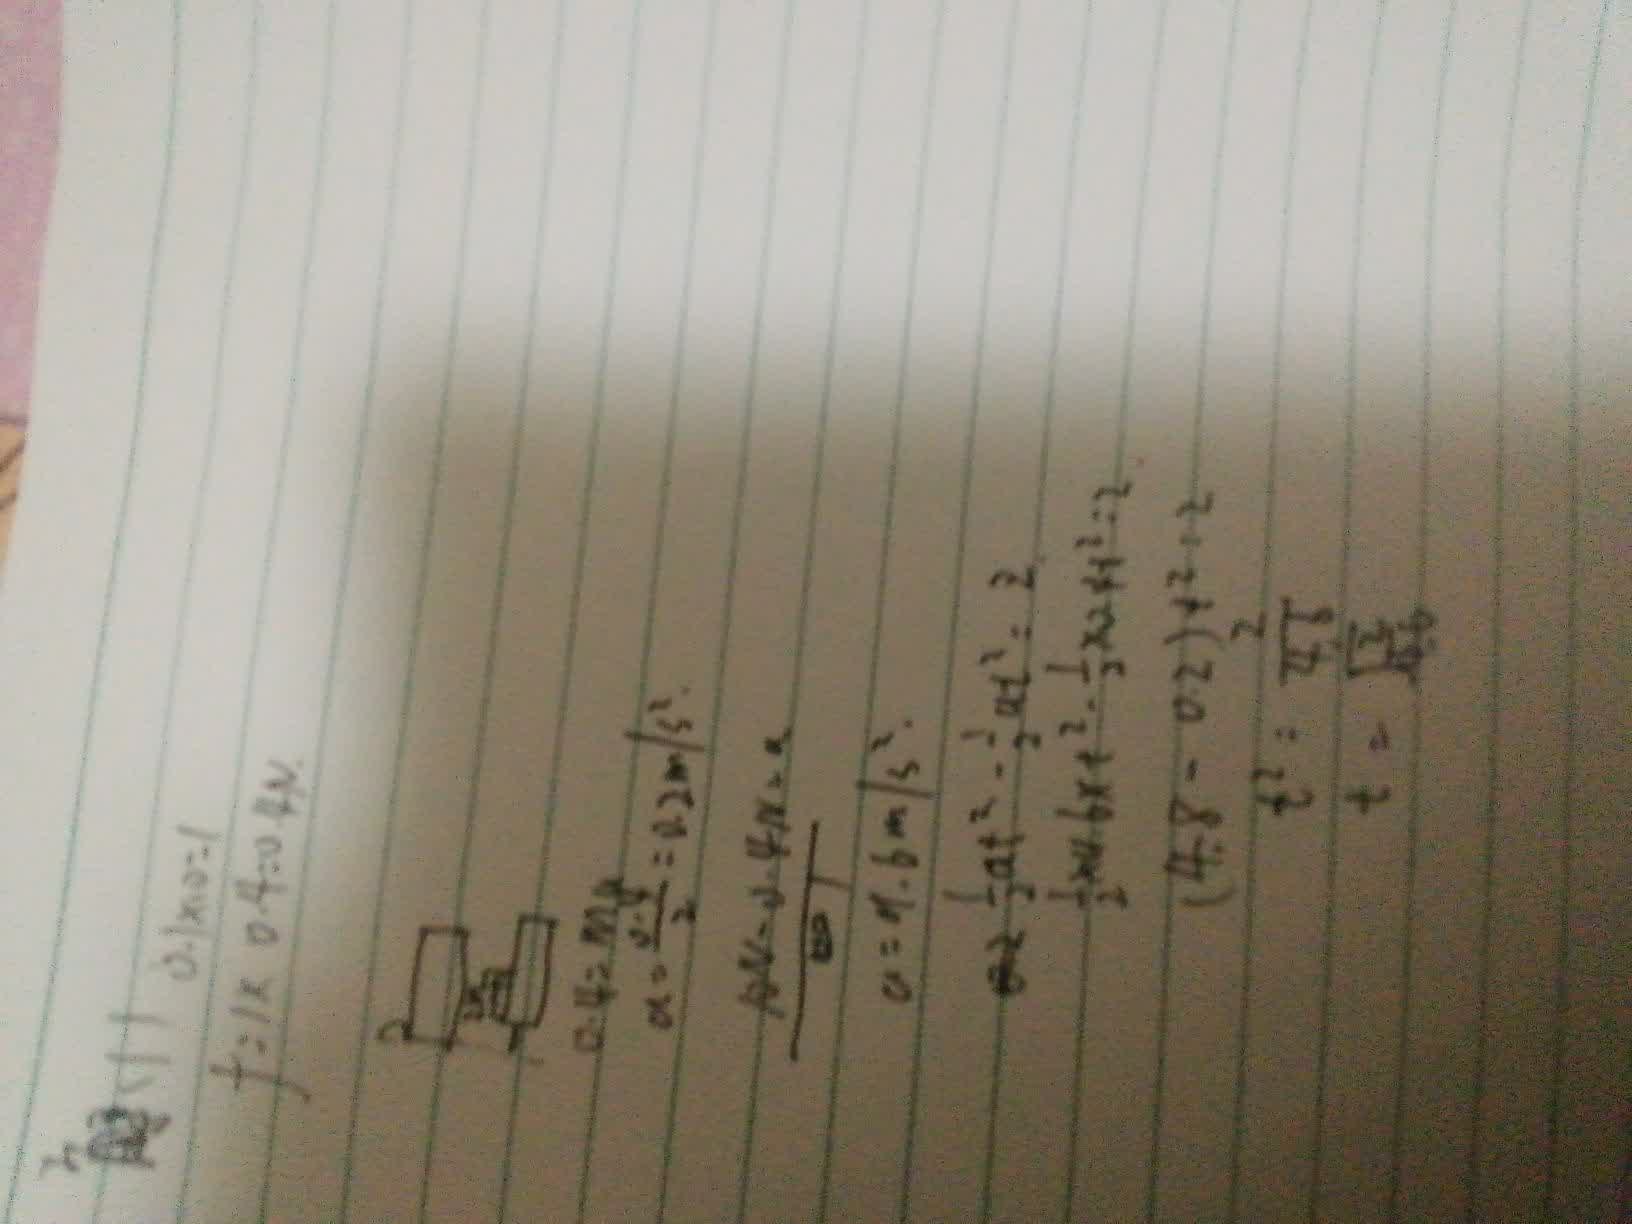 (1) 0.1×10=1
f=1×0.4=0.4N.
0.4=ma
a=0.4/2=0.2m/s².
-0.4N=a
a=9.6m/s².
½at²-½at²=2
½×9.6×t²-½×0.4t²=2
(4.8-0.2)t²=2
t²=2/4.6
t=